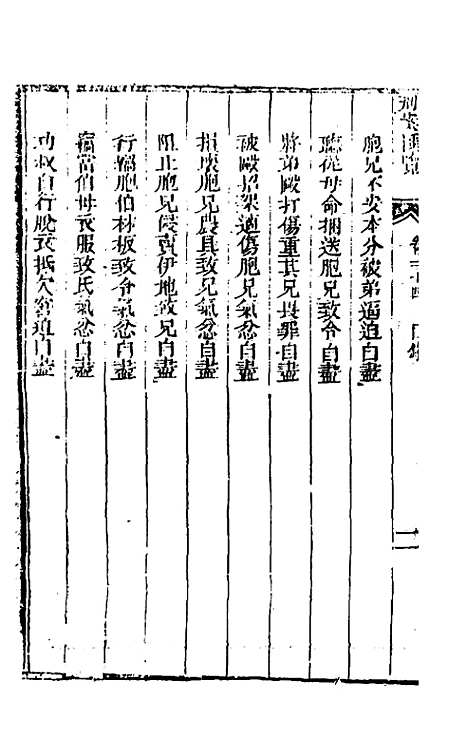 刑案匯覽 卷三十四 目錄 二
胞兄不安本分被弟逼迫自盡
聽從母命捆送胞兄致令自盡
將弟毆打傷重其兄畏罪自盡
被毆招架適傷胞兄氣忿自盡
損壞胞兄農具致兄氣忿自盡
阻止胞兄侵賣伊地致兄自盡
行竊胞伯林板致令氣忿自盡
竊當伯母衣服致氏氣忿自盡
功叔自行脫衣抵欠窘迫自盡